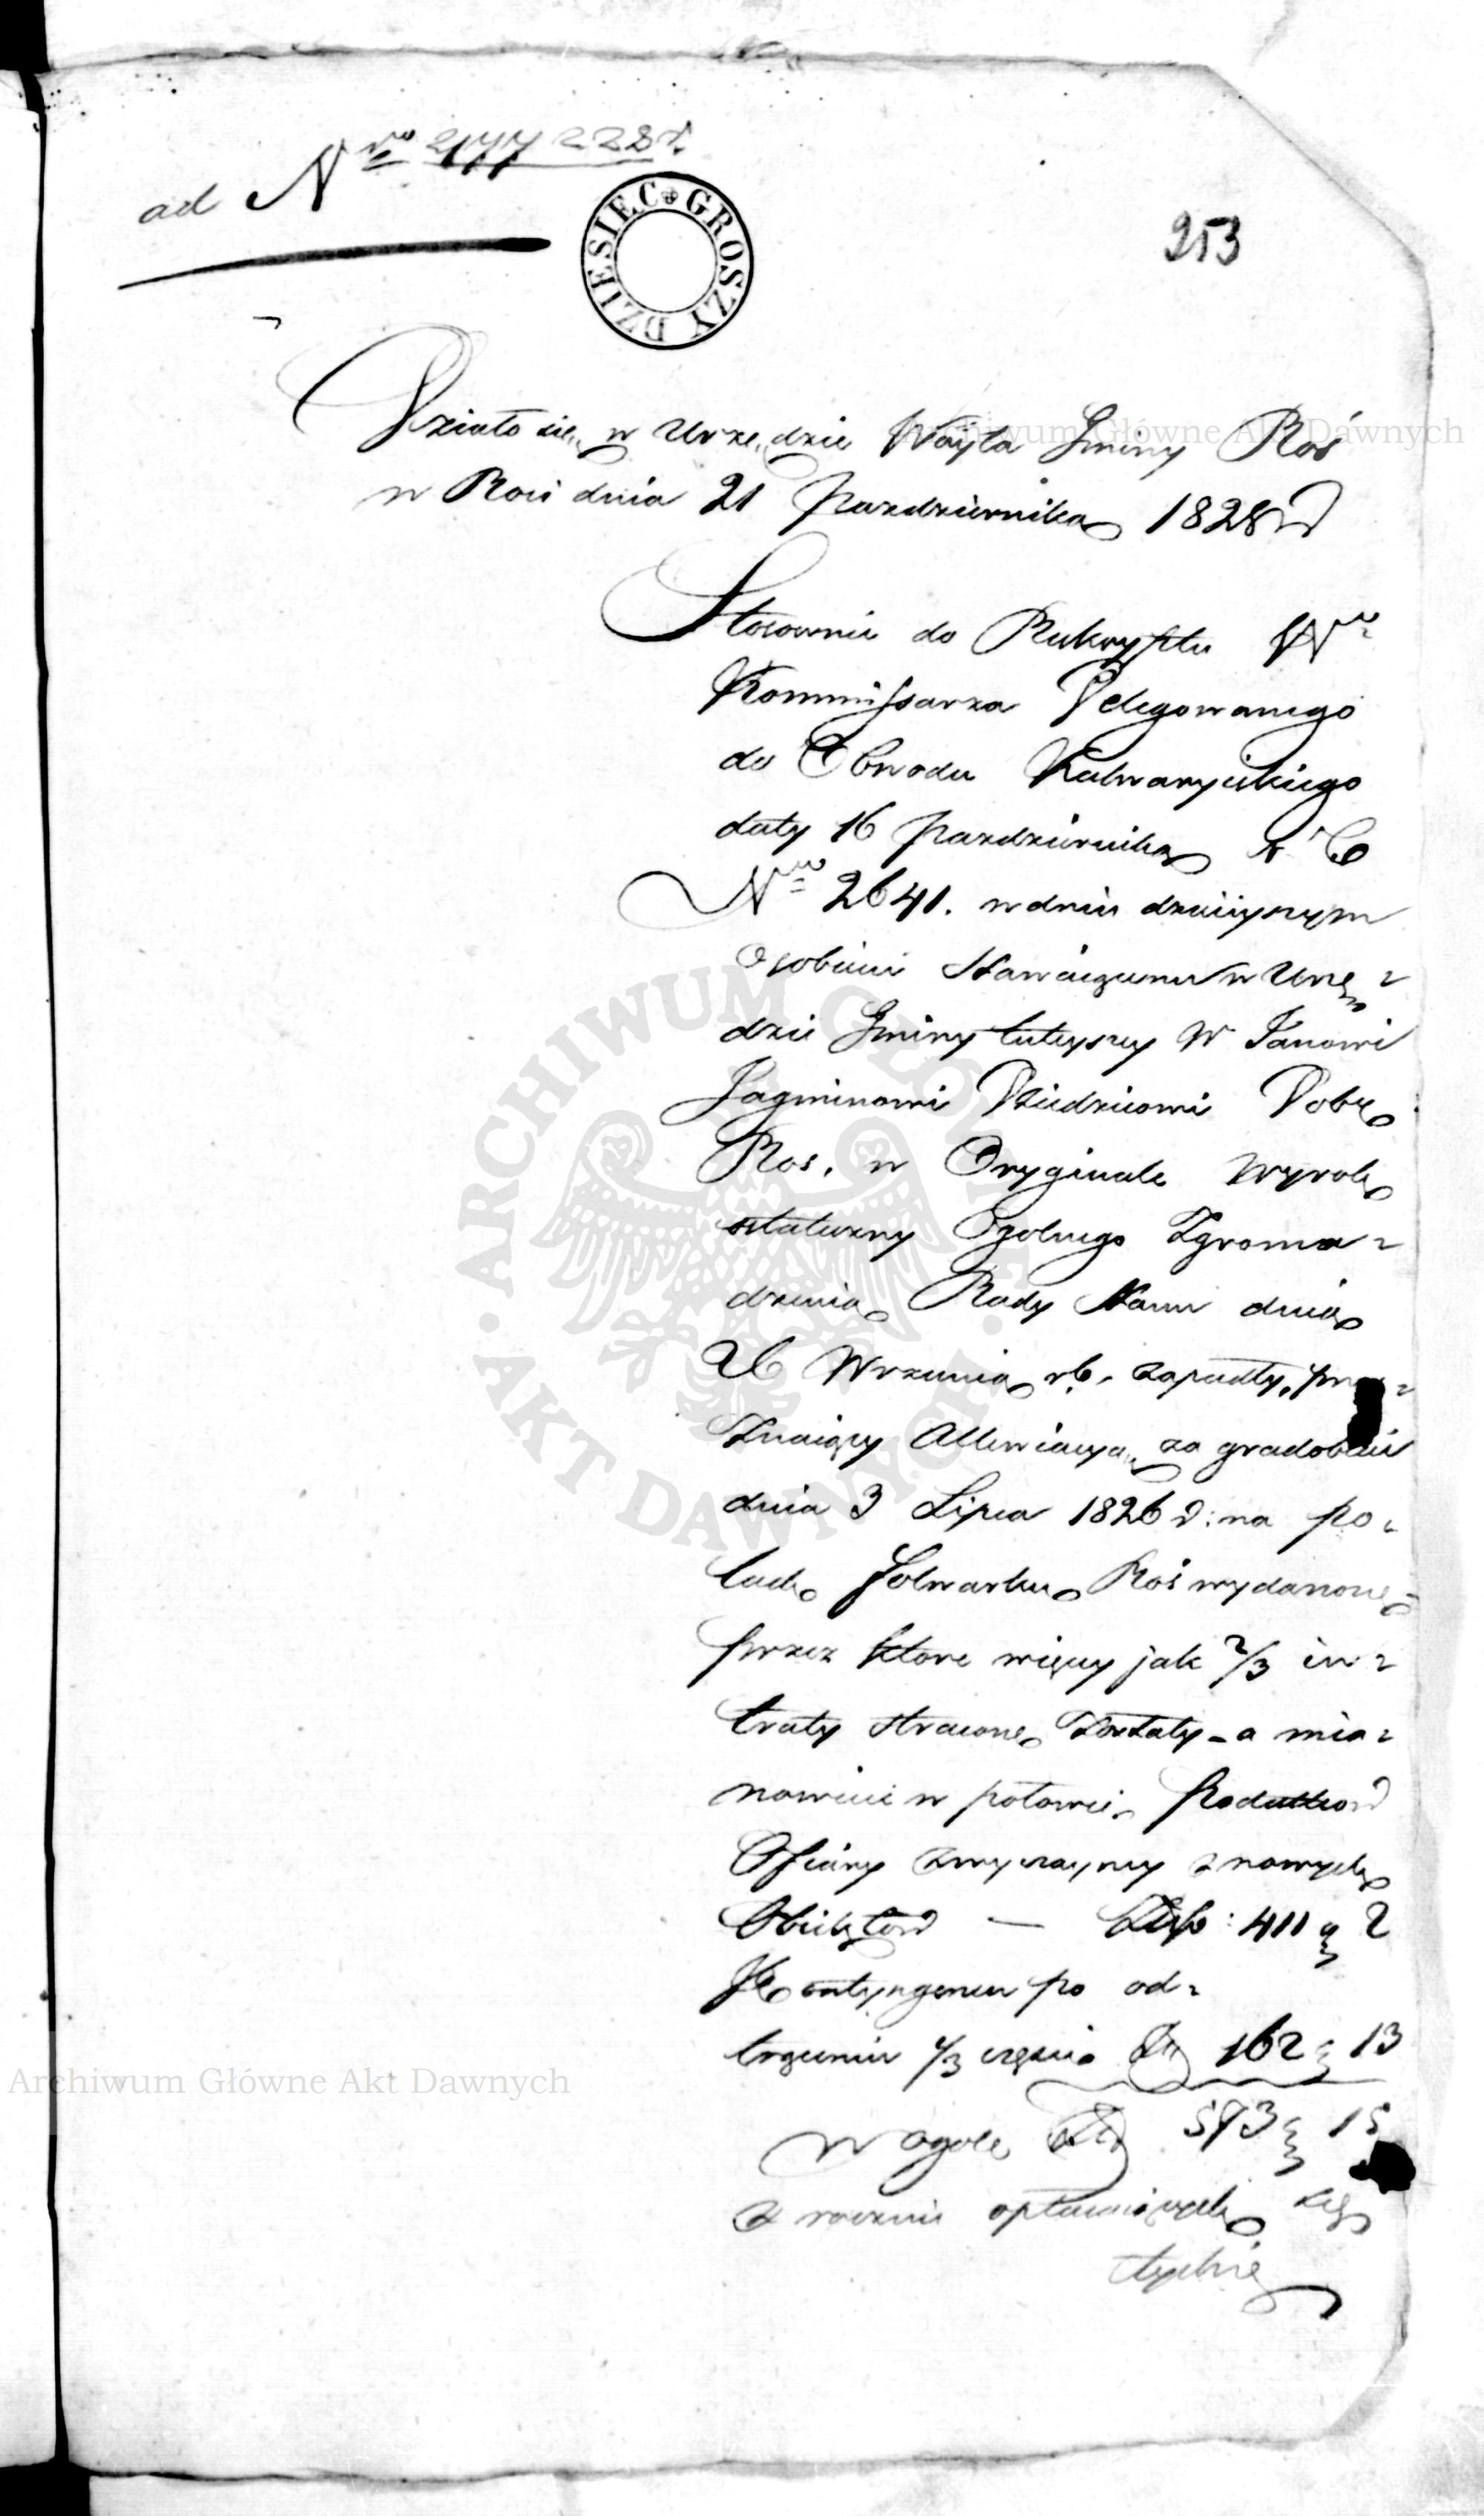 ad Nro 277 228
DZIESIEC GROSZY
253
Działo się w Urzędzie Woyta Gminy Roś
w Rosi dnia 21 Pazdziernika 1828 r
Stosownie do Reskryptu W
Kommissarza Delegowanego
do Obwodu Kalwaryiskiego
daty 16 Pazdziernika r b
Nro 2641. w dniu dzisiyszym
Osobiscie stawaiącemu w Urzę=
dzie Gminy tuteyszey W Janowi
Jagminowi Dziedzicowi Dobr
Ros. w Oryginale Wyrok
ostateczny Ogolnego Zgroma=
dzenia Rady Stanu dnia
26 Wrzesnia r b. zapadły, przy=
znaiący Allewiacyą za gradobicie
dnia 3 Lipca 1826 r: na po=
lach folwarku Roś wydarzone
przez ktore więcey jak 2/3 in=
traty stracone zostały - a mia=
nowicie w połowie Podatkow
Ofiary zwyczayney z nowych
Obiektow — Złp: 411 g 2
Kontyngensu po od=
trąceniu 1/3 części Zł 162 g 13
w ogole Zł 573 g 15
z rocznie opłacaiących się
tychże
Archiwum Główne Akt Dawnych
Archiwum Główne Akt Dawnych
ARCHIWUM GŁÓWNE • AKT DAWNYCH •